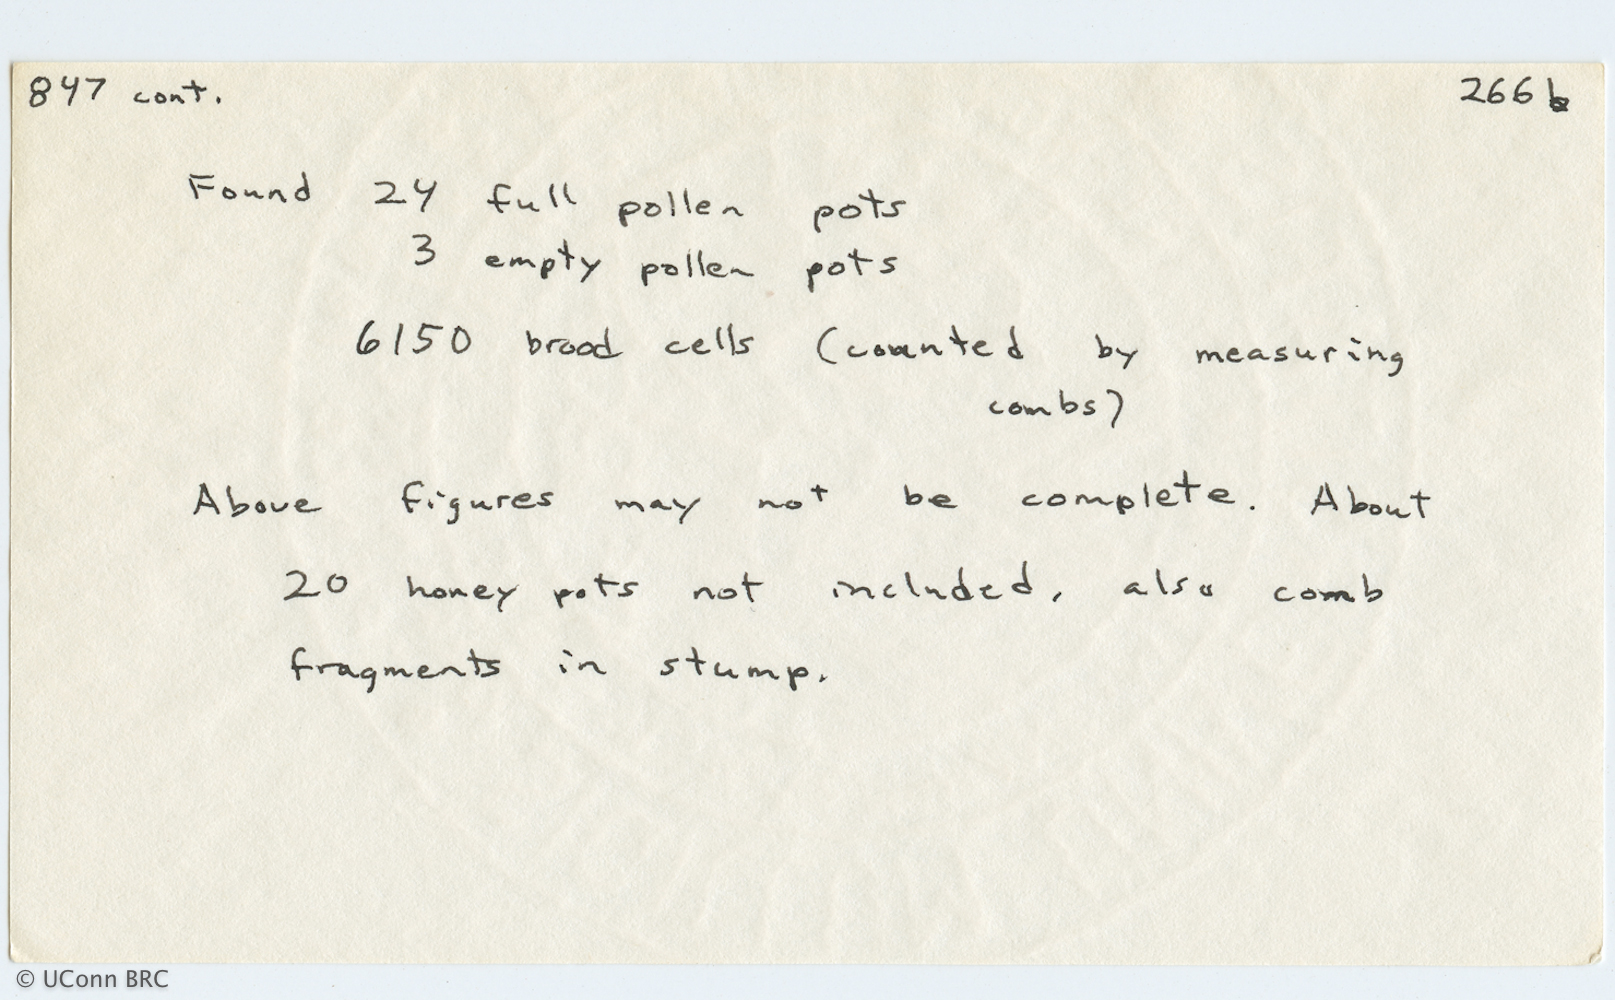 847 cont.
266b
Found 24 full pollen pots
3 empty pollen pots
6150 brood cells (counted by measuring
combs)
Above figures may not be complete. About
20 honey pots not included, also comb
fragments in stump.
© UConn BRC